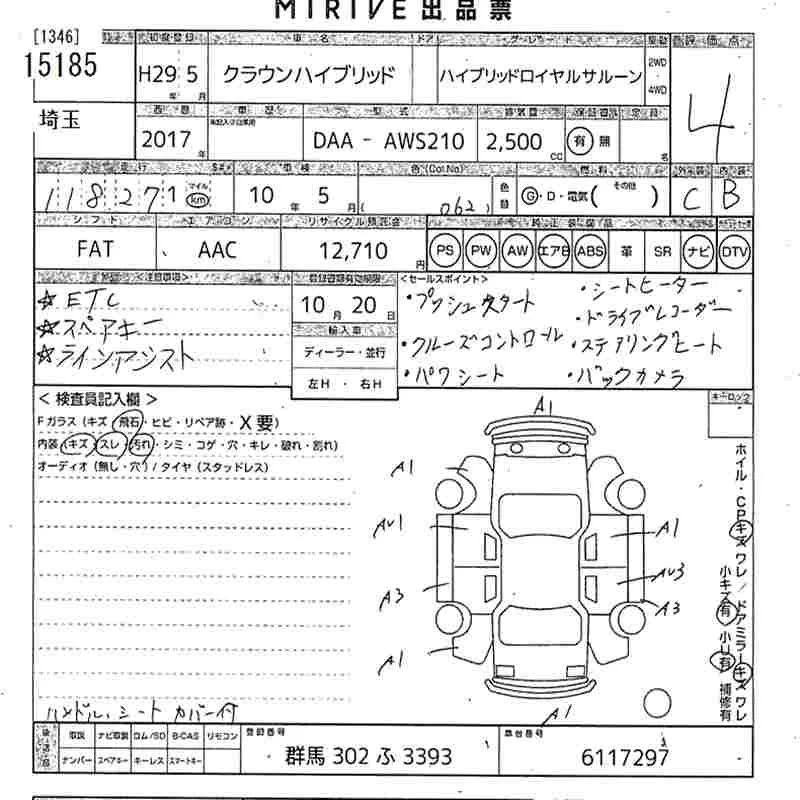 MIRIVE 出品票
[1346] 初度登録 車名 ドア グレード 評価点
15185 H29 5 クラウンハイブリッド ハイブリッドロイヤルサルーン 2WD 4
年 月 4WD
埼玉 車歴 型式 排気量 定員
2017年 DAA - AWS210 2,500cc 有 無 名
走行 車検 色(Col No) 燃料 外装 内装
118271 マイル km 10年 5月 (062) 色替 G・D・電気( その他 ) C B
シフト エアコン リサイクル預託金 純正装備品
FAT AAC 12,710円 PS PW AW エアB ABS 革 SR ナビ DTV
注意事項 登録書類有効期限 <セールスポイント>
☆ETC 10月20日 ・プッシュスタート ・シートヒーター
☆スペアキー 輸入車 ・ドライブレコーダー
☆ラインアシスト ディーラー・並行 ・クルーズコントロール ・ステアリングヒート
左H ・ 右H ・パワシート ・バックカメラ
<検査員記入欄> キーロック
Fガラス(キズ・飛石・ヒビ・リペア跡・X要)
内装(キズ・スレ・汚れ・シミ・コゲ・穴・キレ・破れ・割れ)
オーディオ(無し・穴)/タイヤ(スタッドレス)
A1
A1
AU1 A1
AU3
A3 A3
A1
A1
ホイル・CPキズ ワレ/ドアミラーキズ ワレ
小キズ有 小U有 補修有
ハンドル、シート カバー付
後送品 取説 ナビ取説 ロム/SD B-CAS リモコン 登録番号 車台番号
ナンバー スペアキー キーレス スマートキー 群馬 302 ふ 3393 6117297